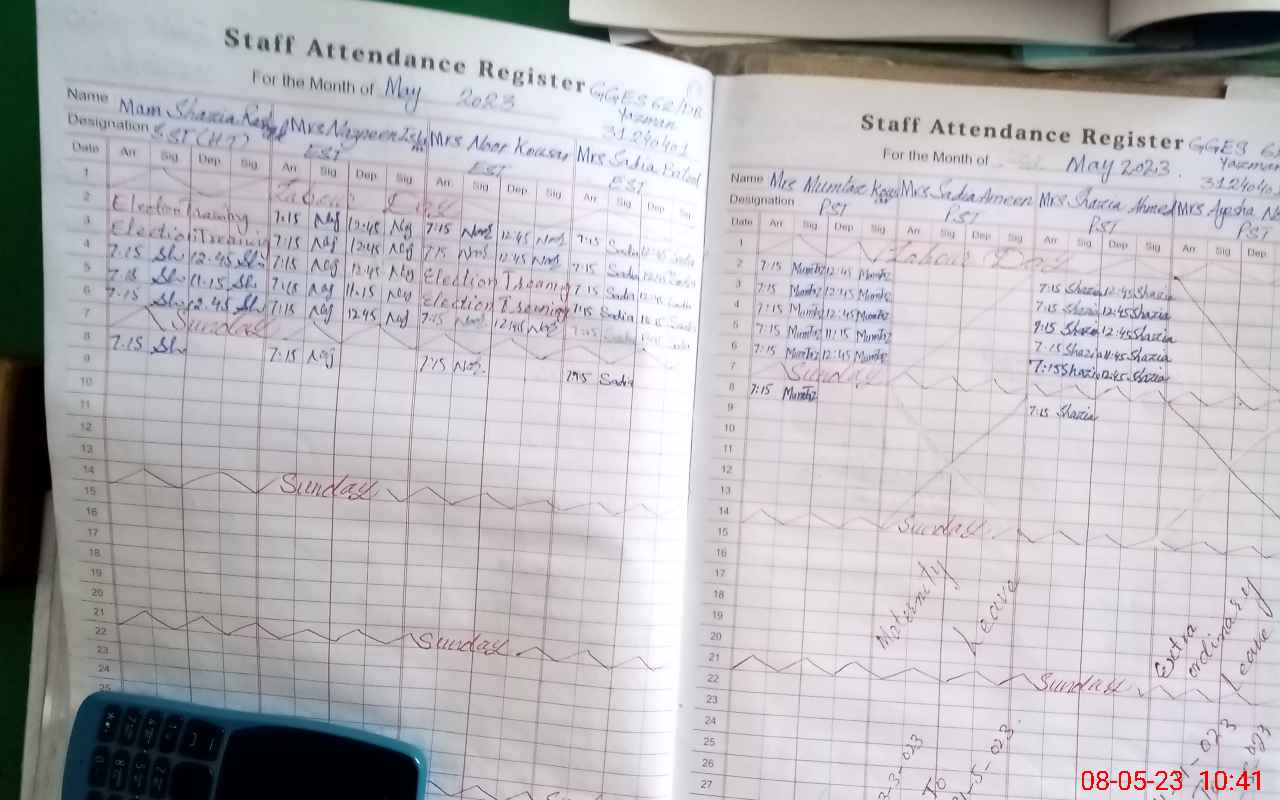 Staff Attendance Register
For the Month of May 2023
GGES 62/DB
Yazman
31240401
Name Mam Shazia Mrs Nazneen Mrs Noor Kousar Mrs Sadia
Designation SST (HT) EST EST EST
Date Arr Sig Dep Sig Arr Sig Dep Sig Arr Sig Dep Sig Arr Sig Dep Sig
1 Labour Day
2 Election Training 7:15 Naj 12:45 Naj 7:15 Noor 12:45 Noor 7:15 Sadia
3 Election Training 7:15 Naj 12:45 Naj 7:15 Noor 12:45 Noor 7:15 Sadia
4 7:15 Sh 12:45 Sh 7:15 Naj 12:45 Naj Election Training 7:15 Sadia
5 7:15 Sh 11:15 Sh 7:15 Naj 11:15 Naj Election Training 7:15 Sadia
6 7:15 Sh 12:45 Sh 7:15 Naj 12:45 Naj 7:15 Noor 12:45 Noor 7:15 Sadia
7 Sunday
8 7:15 Sh 7:15 Naj 7:15 Noor 7:15 Sadia
9
10
11
12
13
14 Sunday
15
16
17
18
19
20
21 Sunday
22
23
24
25
Staff Attendance Register
For the Month of May 2023.
GGES
Yazman
Name Mrs Mumtaz Mrs Sadia Ameen Mrs Shazia Ahmed Mrs Ayesha
Designation PST PST PST PST
Date Arr Sig Dep Sig Arr Sig Dep Sig Arr Sig Dep Sig Arr Sig Dep
1 Labour Day
2 7:15 Mumtaz 12:45 Mumtaz 7:15 Shazia 12:45 Shazia
3 7:15 Mumtaz 12:45 Mumtaz 7:15 Shazia 12:45 Shazia
4 7:15 Mumtaz 12:45 Mumtaz 7:15 Shazia 12:45 Shazia
5 7:15 Mumtaz 11:15 Mumtaz 7:15 Shazia 11:45 Shazia
6 7:15 Mumtaz 12:45 Mumtaz 7:15 Shazia 12:45 Shazia
7 Sunday
8 7:15 Mumtaz 7:15 Shazia
9
10
11
12
13
14 Sunday
15
16
17
18
19
20
21 Sunday
22
23
24
25
26
27
Maternity Leave
TO
Extra ordinary Leave
08-05-23 10:41